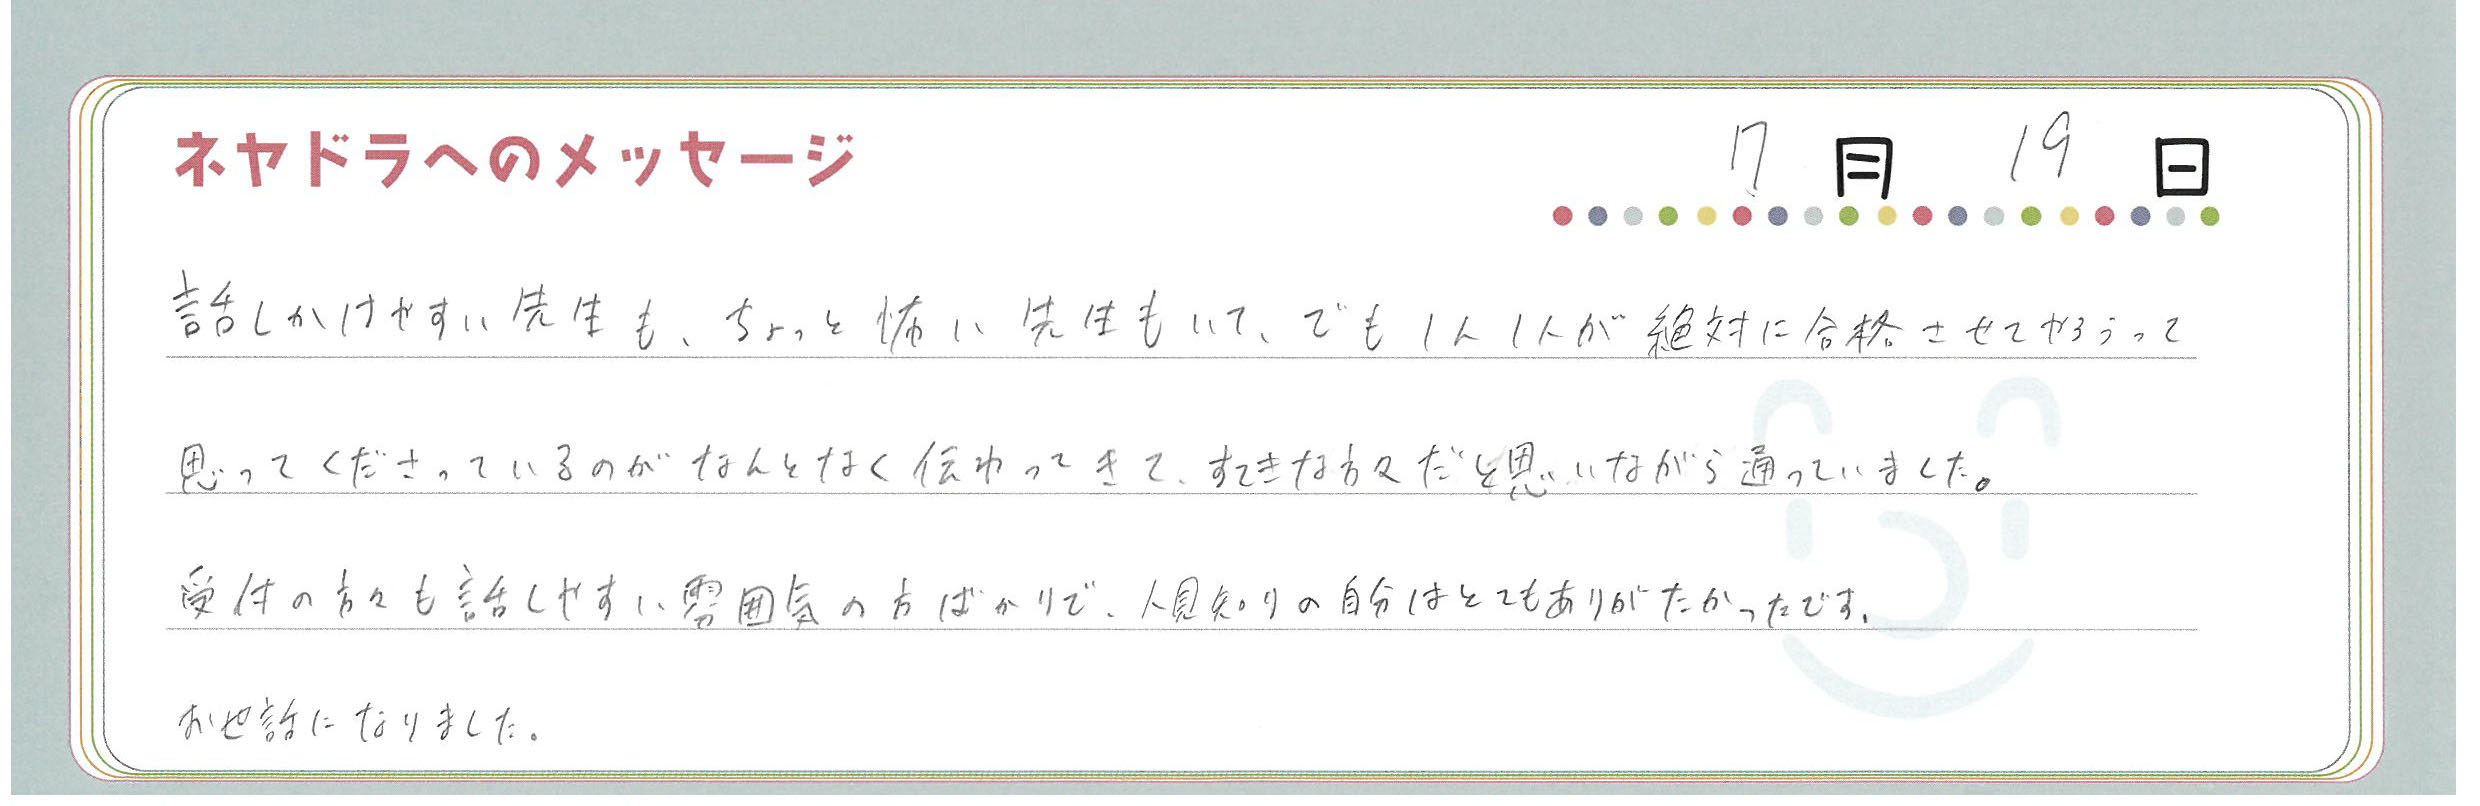 ネヤドラへのメッセージ
7月 19日
話しかけやすい先生も、ちょっと怖い先生もいて、でも1人1人が絶対に合格させてやろうって
思ってくださっているのがなんとなく伝わってきて、すてきな方々だと思いながら通っていました。
受付の方々も話しやすい雰囲気の方ばかりで、人見知りの自分はとてもありがたかったです。
お世話になりました。